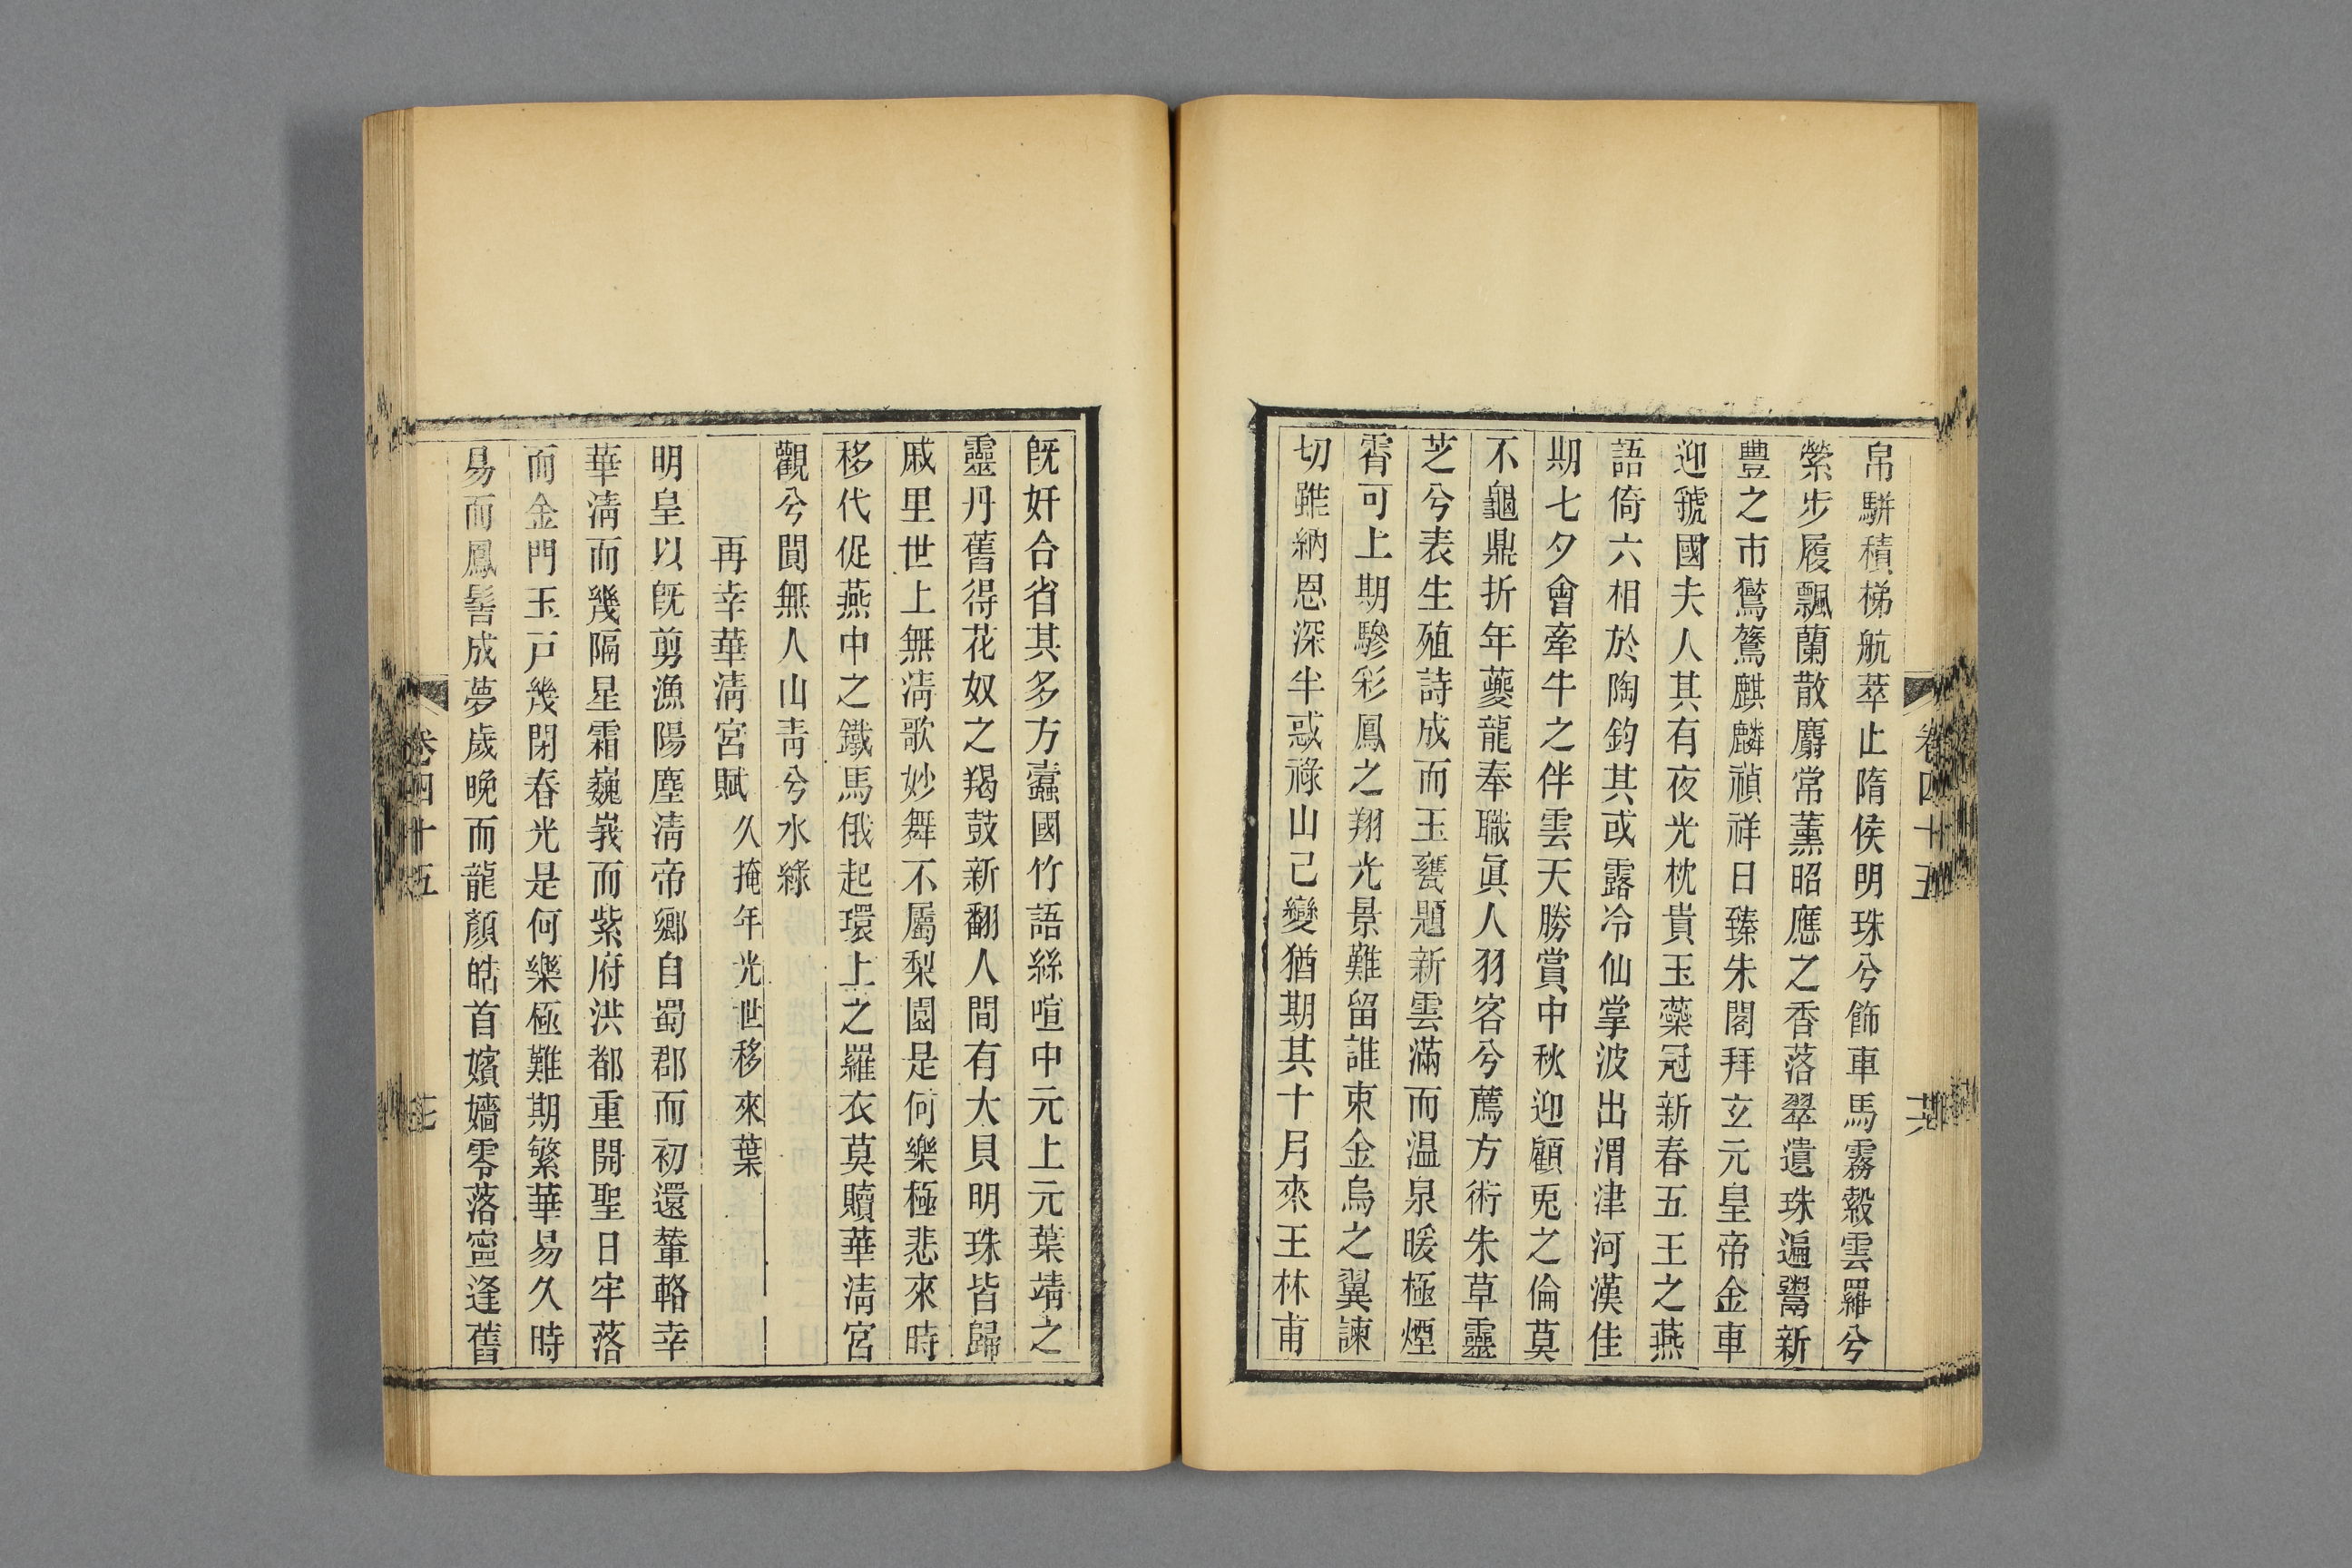 卷四十五
共
帛駢積梯航萃止隋侯明珠兮飾車馬霧縠雲羅兮
縈步履飄蘭散麝常薰昭應之香落翠遺珠遍鬻新
豐之市鸑鷟麒麟禎祥日臻朱閣拜玄元皇帝金車
迎虢國夫人其有夜光枕貴玉藥冠新春五王之燕
語倚六相於陶鈞其或露冷仙掌波出渭津河漢佳
期七夕會牽牛之伴雲天勝賞中秋迎顧兎之倫莫
不龜鼎折年夔龍奉職眞人羽客兮薦方術朱草靈
芝兮表生殖詩成而玉甃題新雲滿而温泉暖極煙
霄可上期驂彩鳳之翔光景難留誰束金烏之翼諫
切雖納恩深半惑祿山己變猶期其十月來王林甫
旣奸合省其多方蠧國竹語絲喧中元上元葉靖之
靈丹舊得花奴之羯鼓新翻人間有大貝明珠皆歸
戚里世上無淸歌妙舞不屬梨園是何樂極悲來時
移代促燕中之鐵馬俄起環上之羅衣莫贖華淸宮
觀兮閴無人山靑兮水綠
再幸華淸宮賦 久掩年光世移來葉
明皇以旣剪漁陽塵淸帝鄉自蜀郡而初還輦輅幸
華淸而幾隔星霜巍峩而紫府洪都重開聖日牢落
而金門玉戸幾閉春光是何樂極難期繁華易久時
易而鳳髻成夢歲晚而龍顏皓首嬪嬙零落寍逢舊
卷四十五